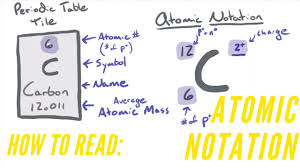 Periodic Table
Tile
6
C
Carbon
12.011
Atomic #
(# of p⁺)
Symbol
Name
Average
Atomic Mass
Atomic Notation
p⁺ n°
12
C
6
# of p⁺
2+
charge
HOW TO READ:
ATOMIC
NOTATION